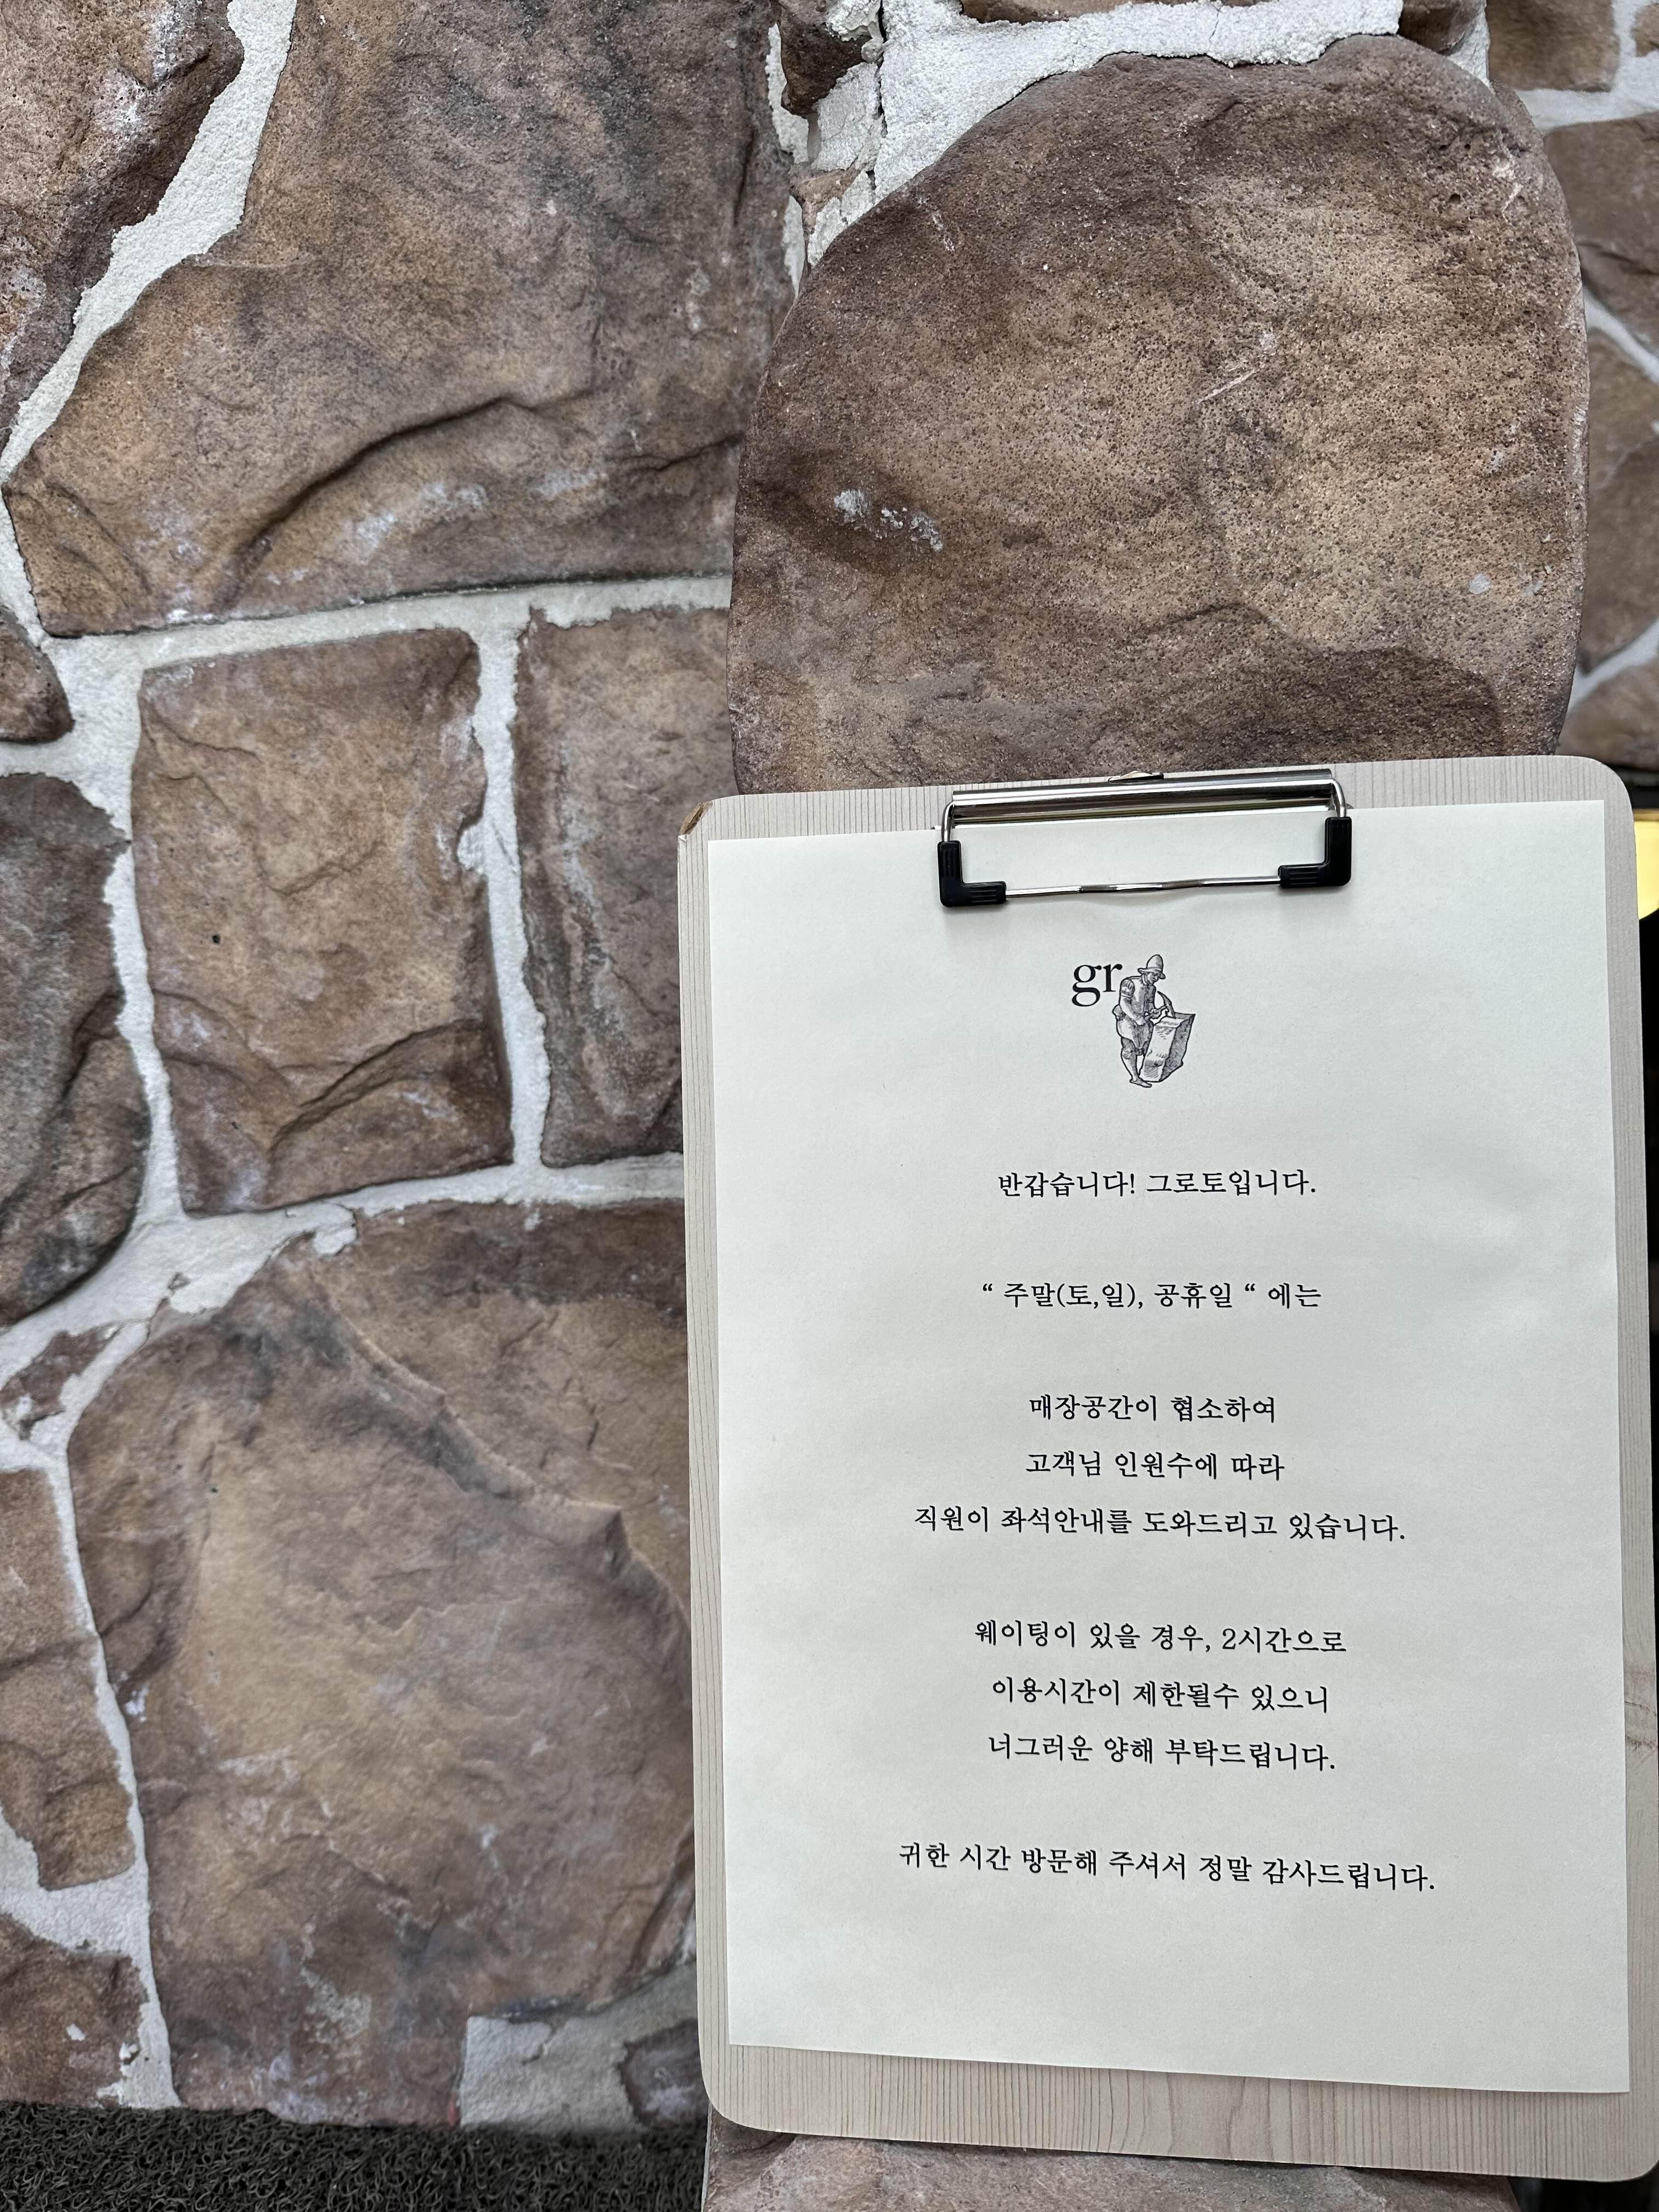 gr
반갑습니다! 그로토입니다.
“ 주말(토,일), 공휴일 “ 에는
매장공간이 협소하여
고객님 인원수에 따라
직원이 좌석안내를 도와드리고 있습니다.
웨이팅이 있을 경우, 2시간으로
이용시간이 제한될수 있으니
너그러운 양해 부탁드립니다.
귀한 시간 방문해 주셔서 정말 감사드립니다.